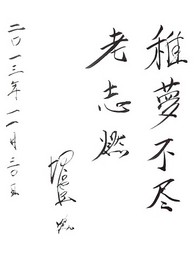 稚夢不尽
老志燃
二〇一三年一一月三〇日